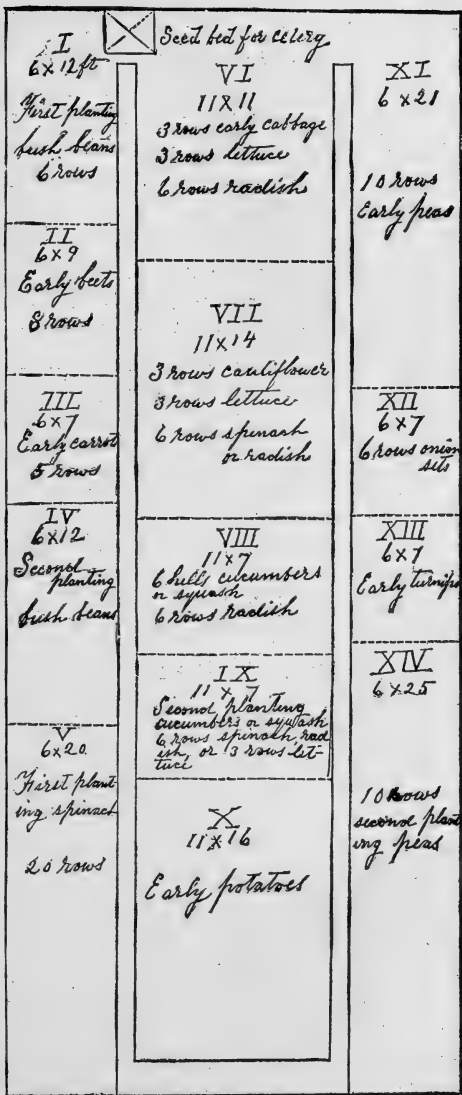 Seed bed for celery
I
6 x 12 ft
First planting
bush beans
6 rows
II
6 x 9
Early beets
8 rows
III
6 x 7
Early carrot
5 rows
IV
6 x 12
Second
planting
bush beans
V
6 x 20
First plant-
ing spinach
20 rows
VI
11 x 11
3 rows early cabbage
3 rows lettuce
6 rows radish
VII
11 x 14
3 rows cauliflower
3 rows lettuce
6 rows spinach
or radish
VIII
11 x 7
6 hills cucumbers
or squash
6 rows radish
IX
11 x 7
Second planting
cucumbers or squash
6 rows spinach rad
ish, or 3 rows let-
tuce
X
11 x 16
Early potatoes
XI
6 x 21
10 rows
Early peas
XII
6 x 7
6 rows onion
sets
XIII
6 x 7
Early turnips
XIV
6 x 25
10 rows
second plant
ing peas